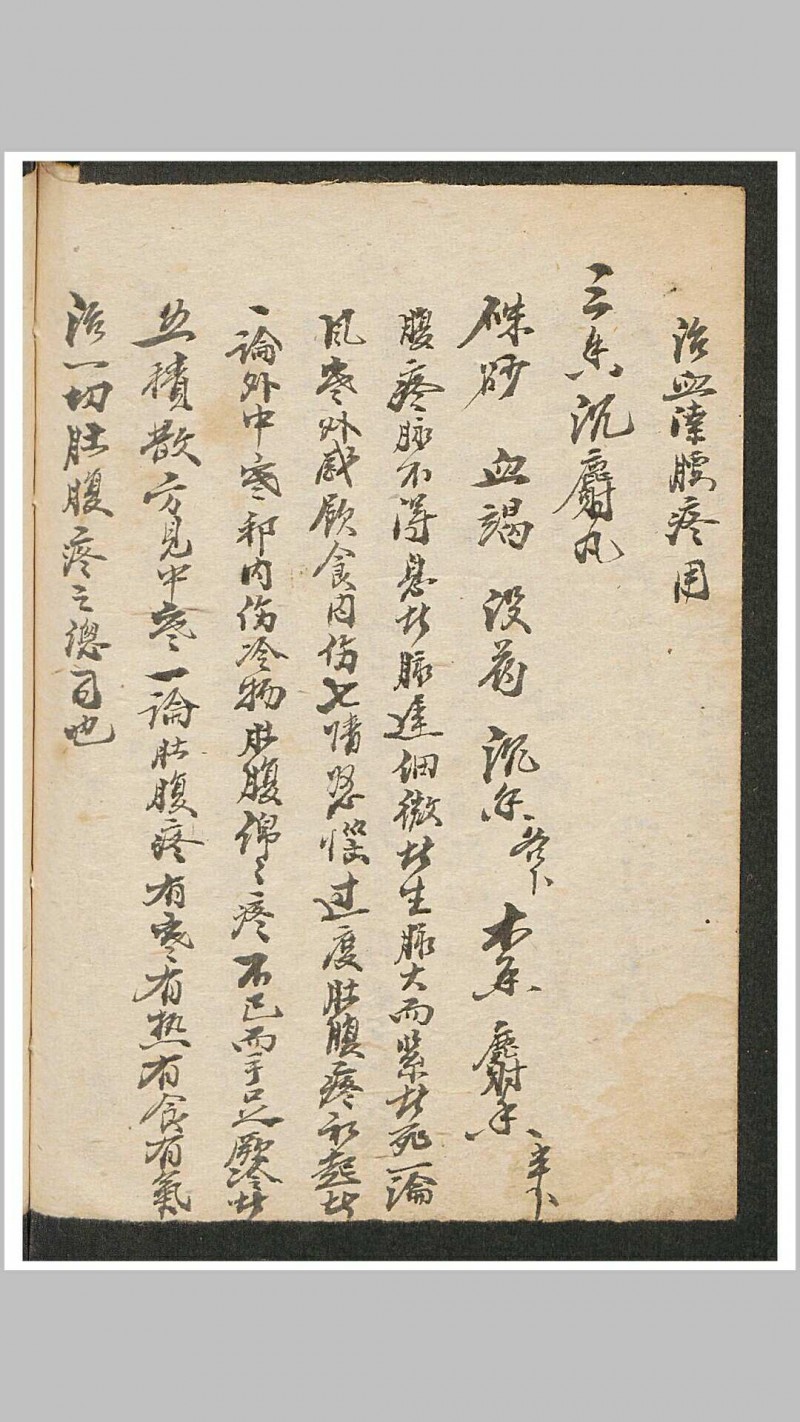 治血滞腰疼用
三香沉麝丸
硃砂 血竭 没药 沉香各卜 木香 麝香半卜
腹疼脉不得息者脉迟细微者生脉大而紧者死一論
风寒外感飲食内伤七情怒恼过度肚腹疼初起者
一論外中寒邪内伤冷物肚腹綿〻疼不已而手足厥冷者
五積散方見中寒一論肚腹疼有寒有热有食有氣
治一切肚腹疼之總司也